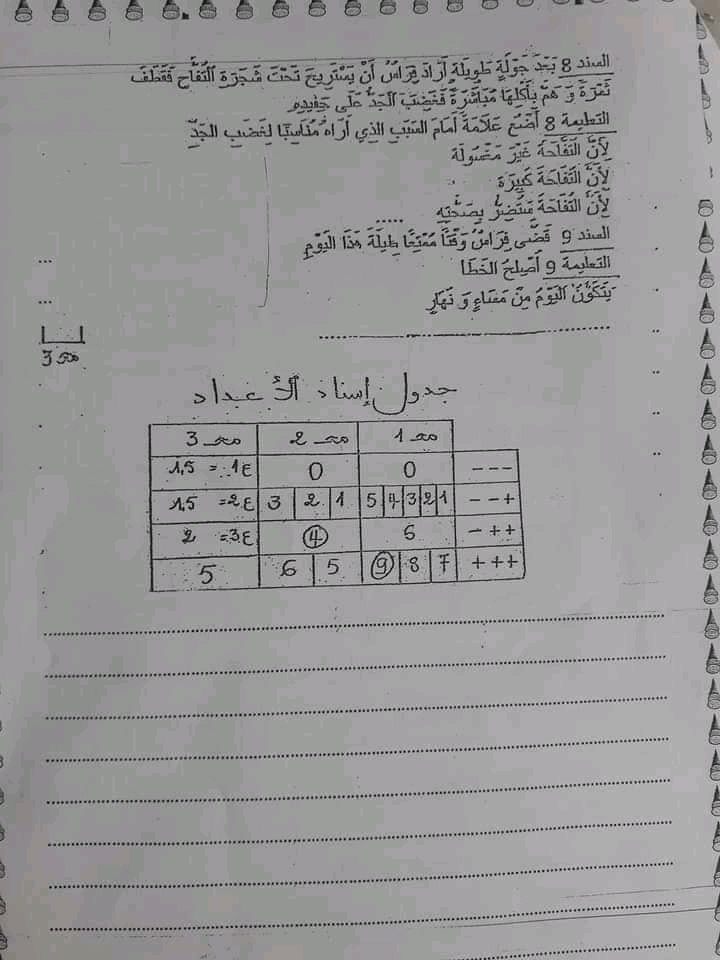 السند 8 بَعْدَ جَوْلَةٍ طَوِيلَةٍ أَرَادَ فِرَاسُ أَنْ يَسْتَرِيحَ تَحْتَ شَجَرَةِ التُّفَّاحِ فَقَطَفَ
ثَمَرَةً وَ هَمَّ بِأَكْلِهَا مُبَاشَرَةً فَغَضِبَ الجَدُّ عَلَى حَفِيدِهِ
التعليمة 8 أَضَعُ عَلَامَةً أَمَامَ السَّبَبِ الذِي أَرَاهُ مُنَاسِبًا لِغَضَبِ الجَدِّ
لِأَنَّ التُّفَّاحَةَ غَيْرَ مَغْسُولَة
لِأَنَّ التُّفَاحَةَ كَبِيرَة
لِأَنَّ التُفَاحَةَ سَتَضُرُّ بِصَحَّتِهِ .....
السند 9 قَضَّى فِرَاسُ وَقْتًا مُمْتِعًا طِيلَةَ هَذَا اليَوْمِ
التعليمة 9 أُصْلِحُ الخَطَأ
يَتَكَوَّنُ اليَوْمُ مِنْ مَسَاءٍ وَ نَهَارٍ
...
...
مع 3
جدول إسناد الأعداد
مع 1 مع 2 مع 3
--- 0 0 ع1 = 1,5
--+ 1 2 3 4 5 1 2 3 ع2= 1,5
-++ 6 4 ع3= 2
+++ 7 8 9 5 6 5